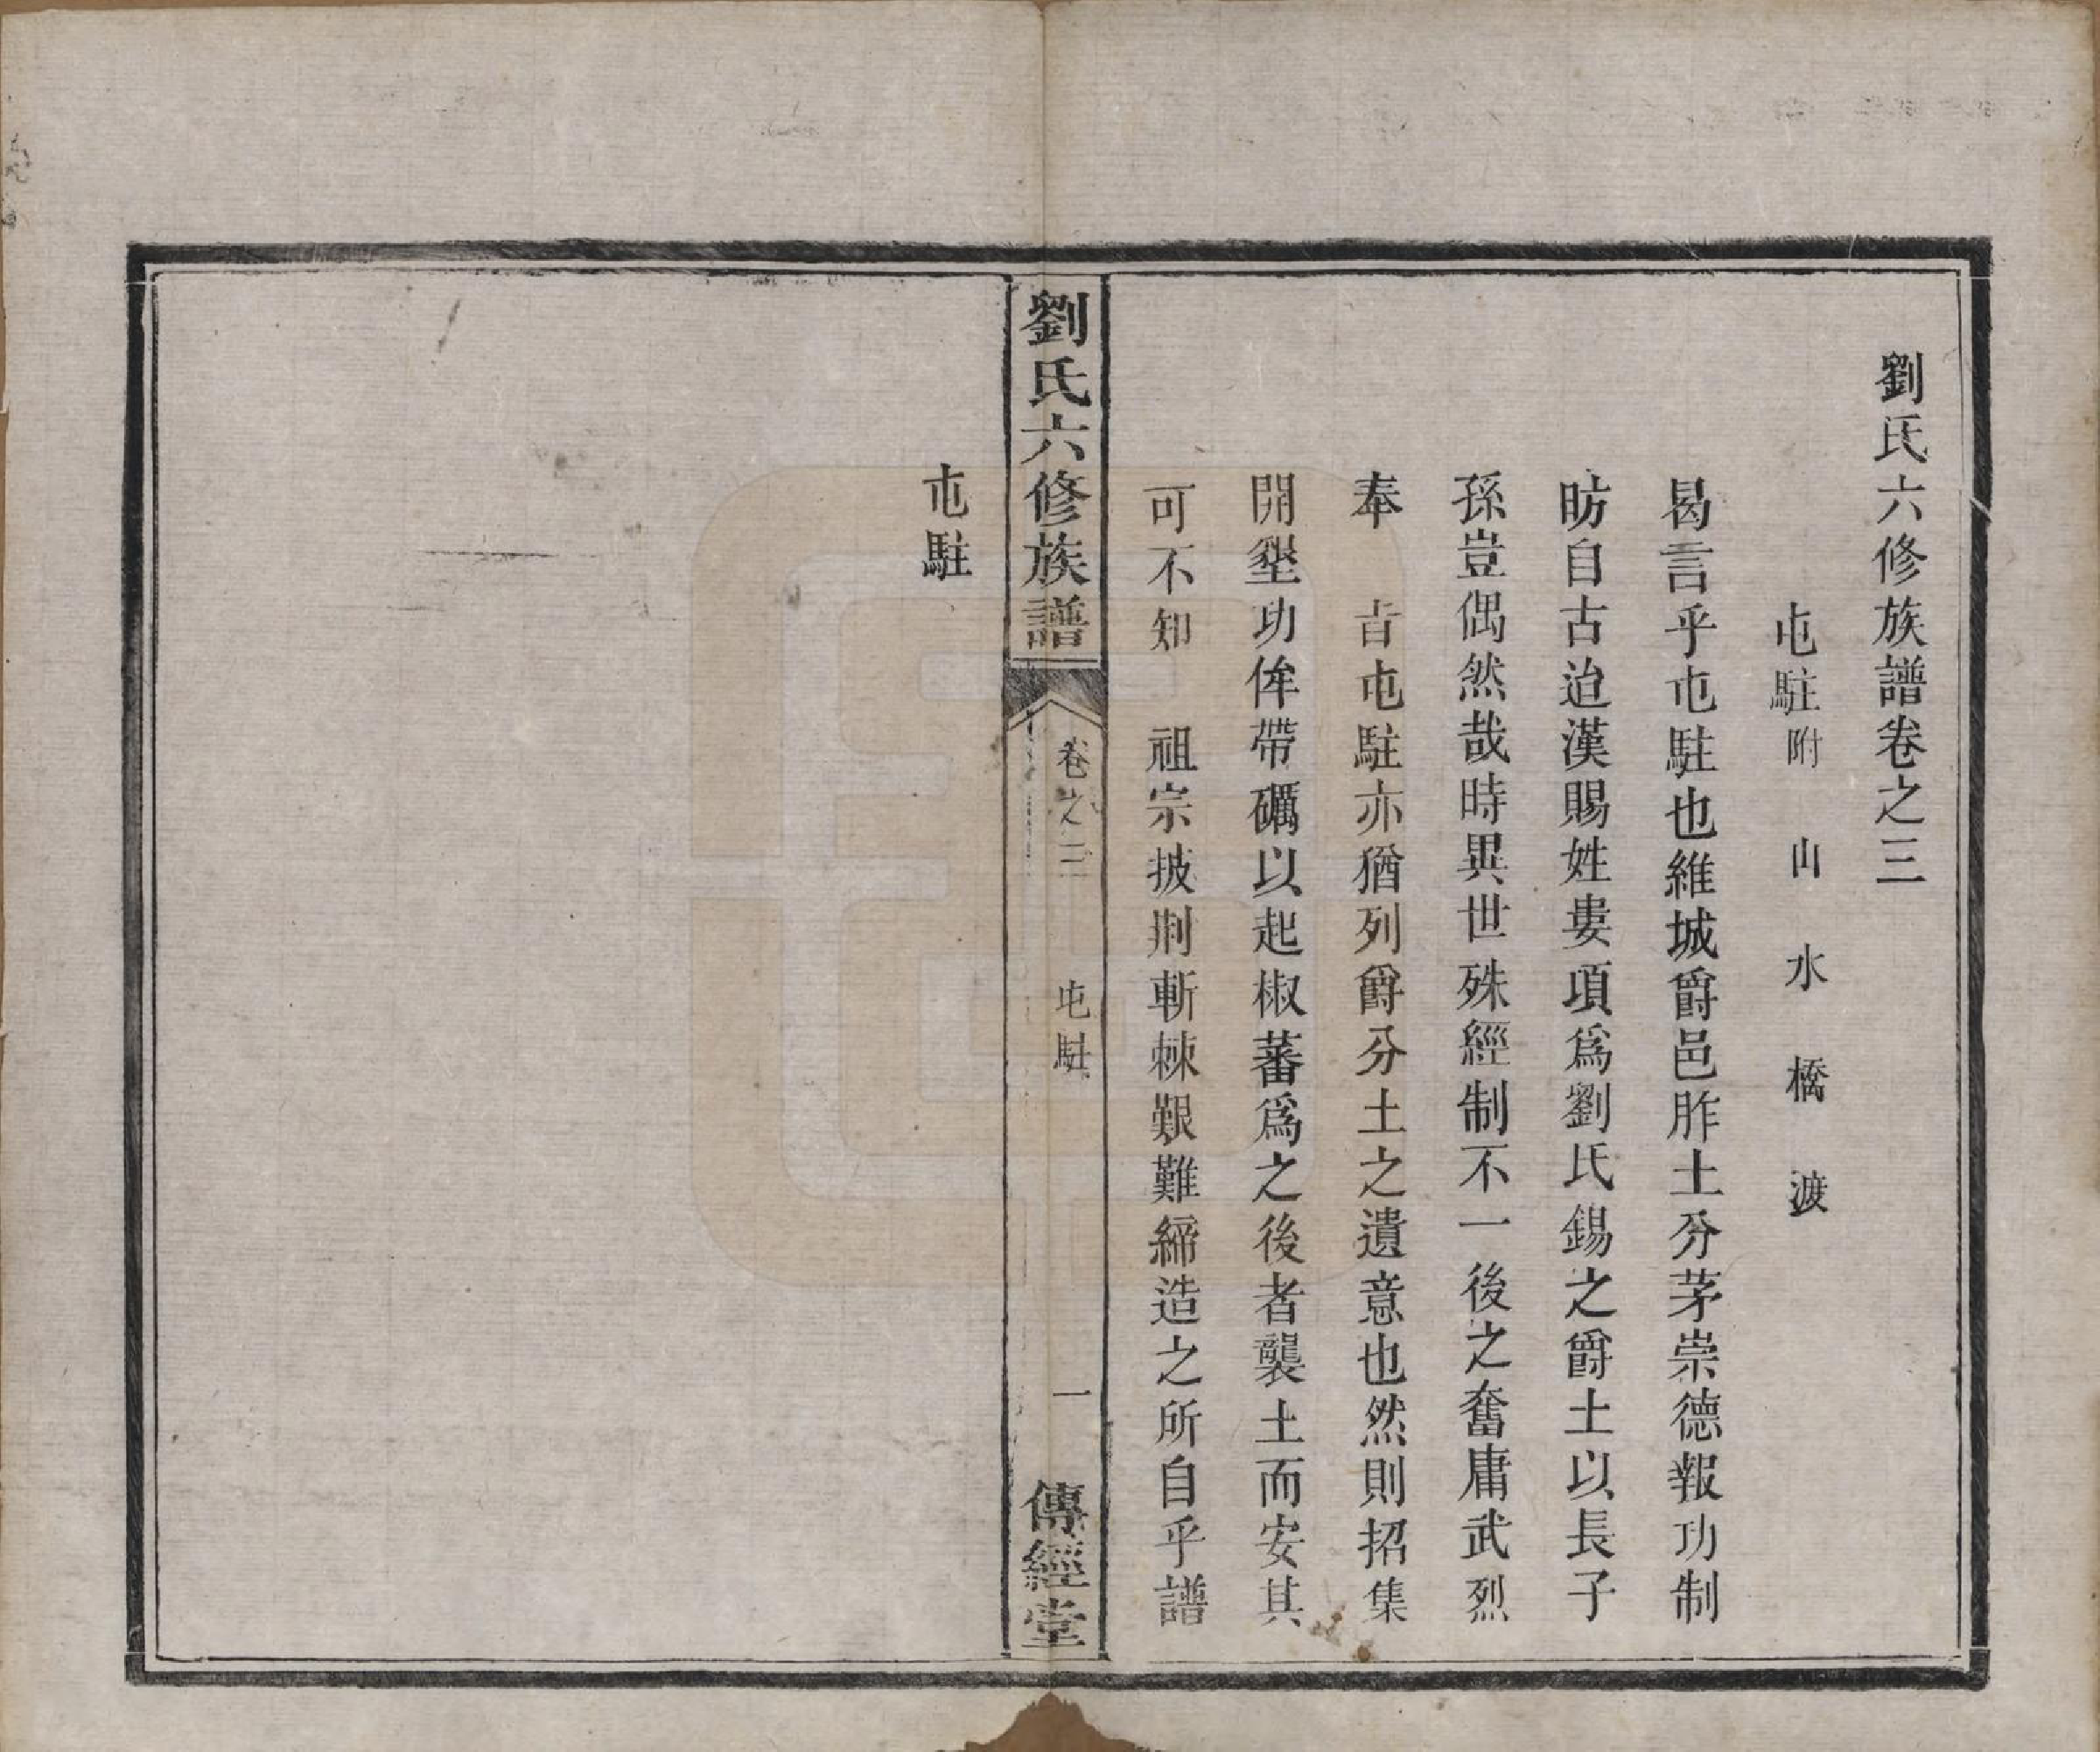 劉氏六修族譜卷之三
屯駐附 山 水 橋 渡
曷言乎屯駐也維城爵邑胙土分茅崇德報功制
昉自古迨漢賜姓婁項爲劉氏錫之爵土以長子
孫豈偶然哉時異世殊經制不一後之奮庸武烈
奉 旨屯駐亦猶列爵分土之遺意也然則招集
開墾功侔帶礪以起椒蕃爲之後者襲土而安其
可不知 祖宗披荆斬棘艱難締造之所自乎譜
屯駐
劉氏六修族譜 卷之三 屯駐 一 傳經堂